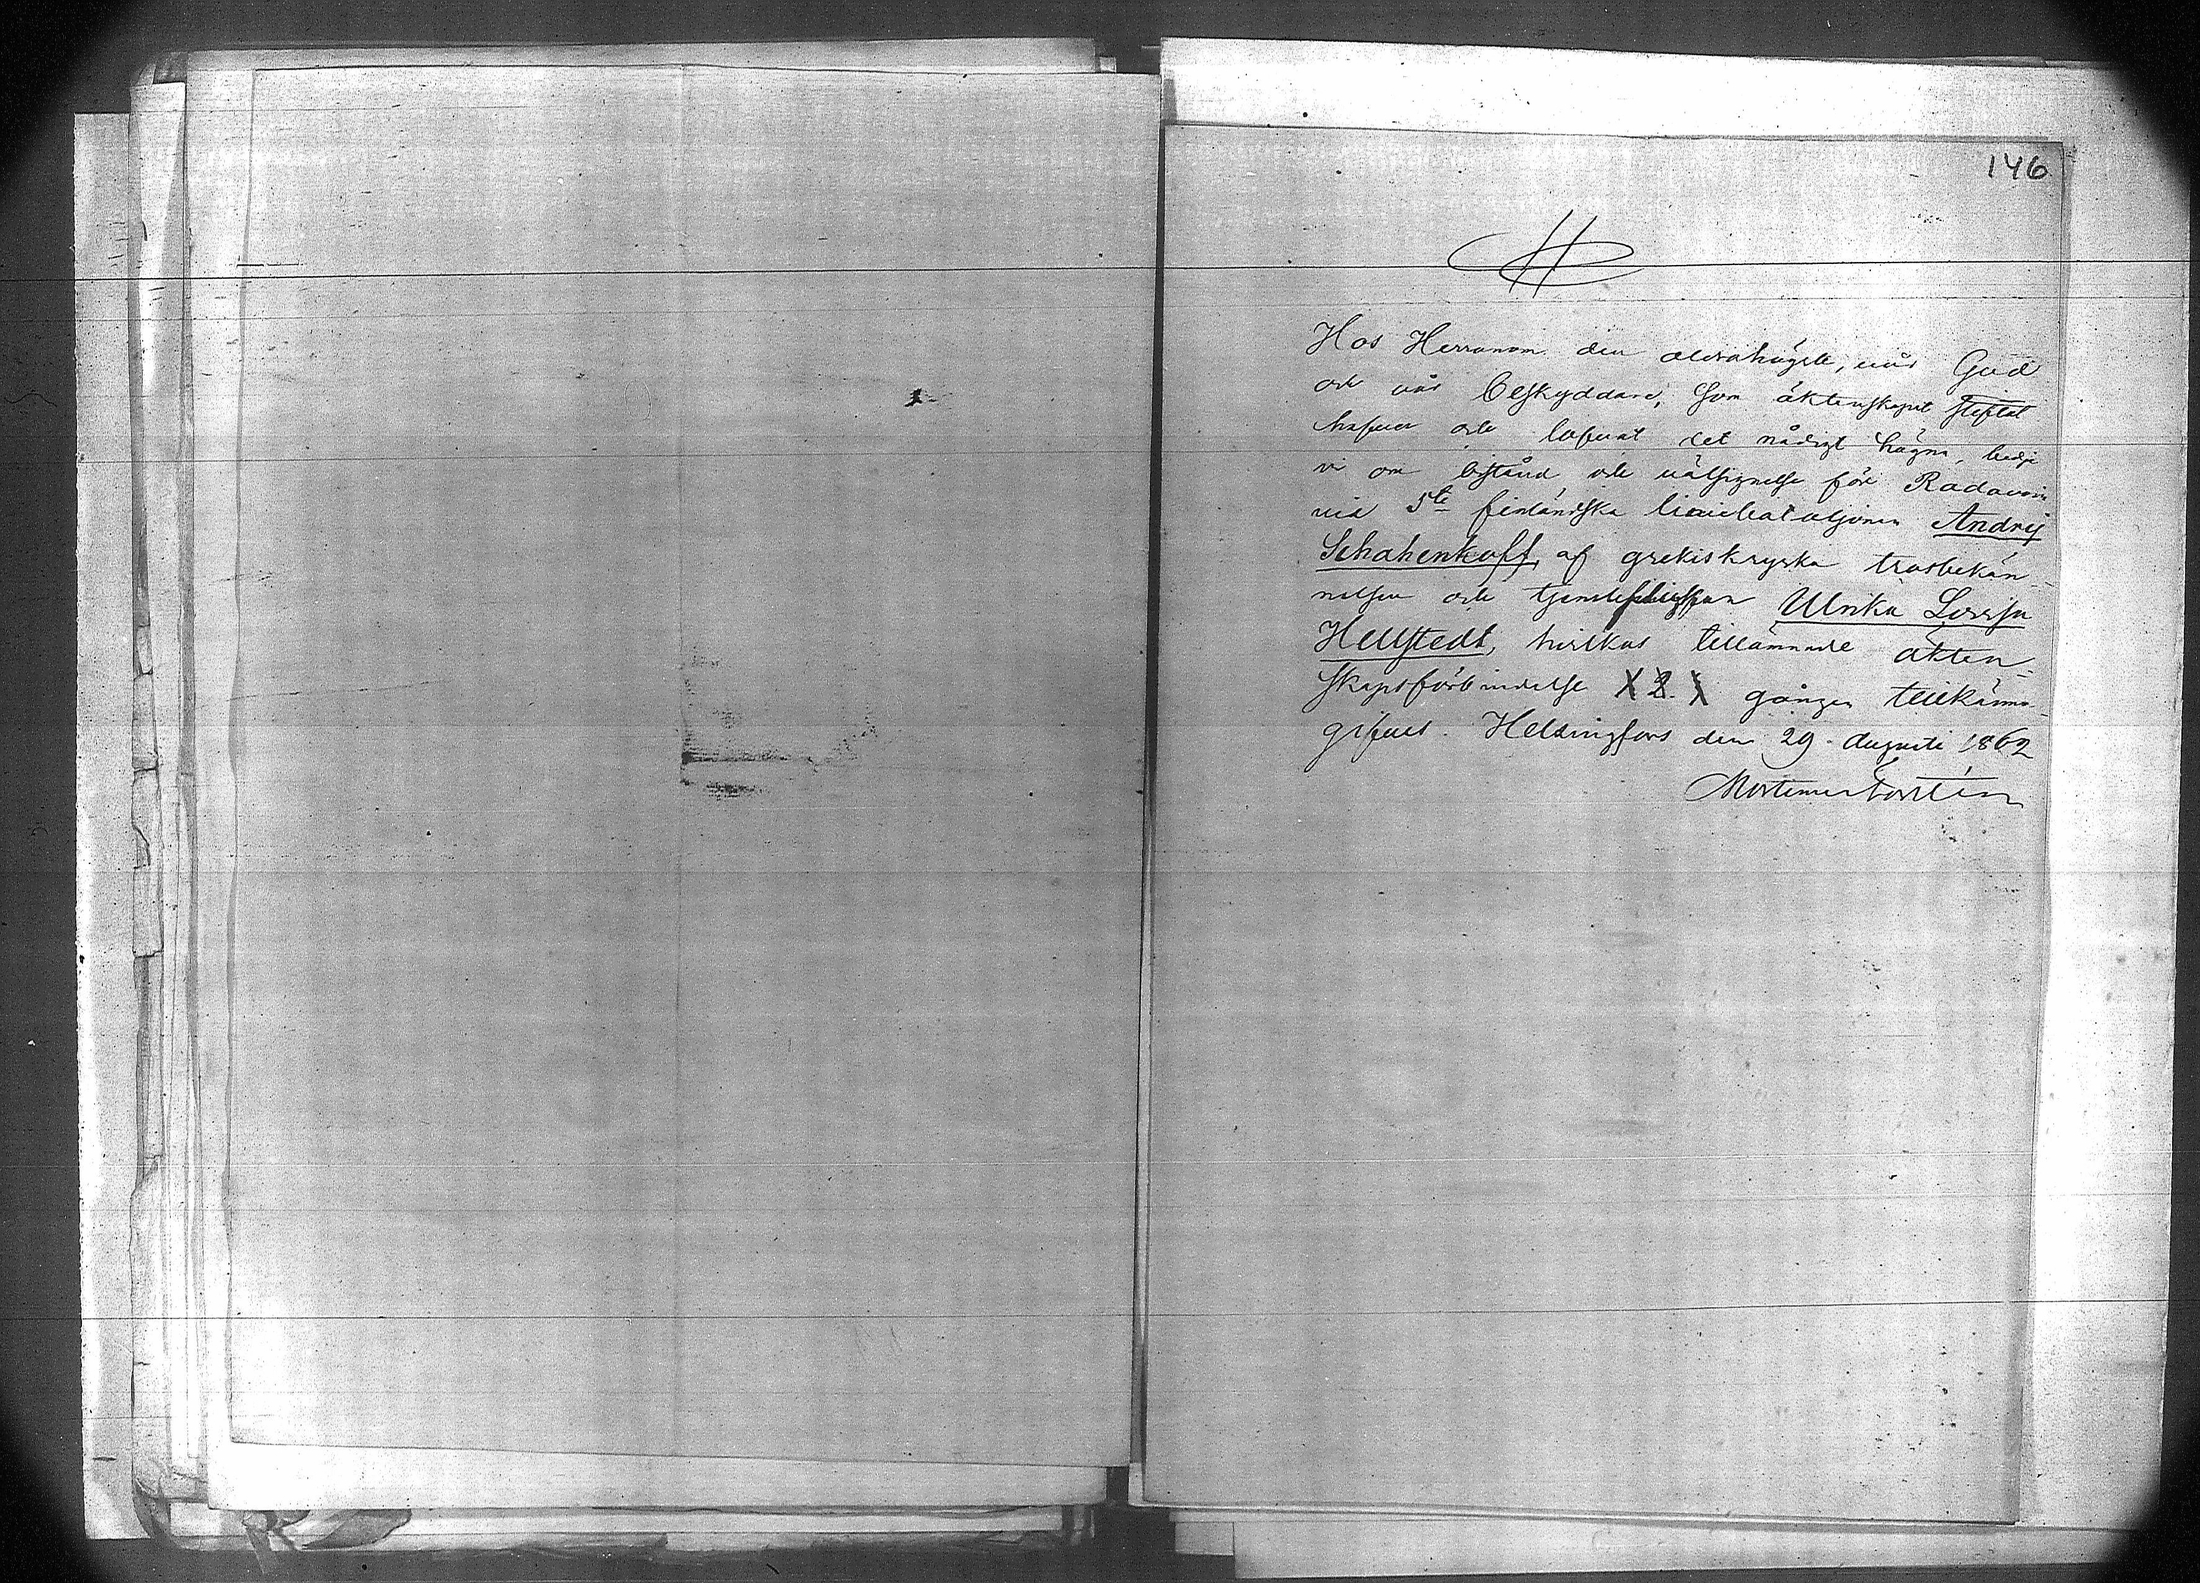 146
H
Hos Herranom den aldrahögste, vår Gud
och vår Beskyddare, som äktenskapet stiftat
hafver och lofvat det nådigt hägna, bedje
vi om bistånd och välsignelse för
vid 5te finländska liniebataljonen Andrej
Schahenkoff, af grekiskryska trosbekän-
nelsen och tjensteflickan Ulrika Lovisa
Hellstedt, hvilkas tillämnade äkten-
skapsförbindelse X 2. X gången tillkänna-
gifves. Helsingfors den 29 Augusti 1862
Mortimer